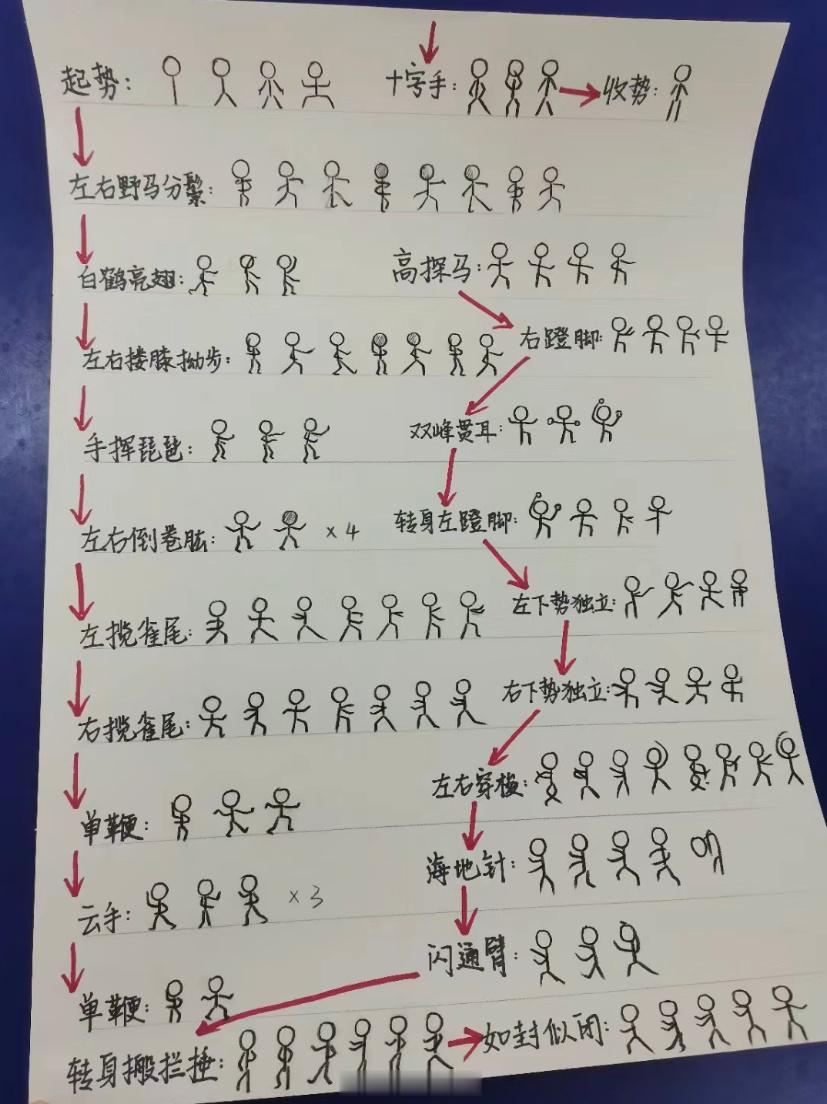 起势：
十字手：
收势：
左右野马分鬃：
白鹤亮翅：
高探马：
左右搂膝拗步：
右蹬脚：
手挥琵琶：
双峰贯耳：
左右倒卷肱：
×4
转身左蹬脚：
左揽雀尾：
左下势独立：
右揽雀尾：
右下势独立：
左右穿梭：
单鞭：
海地针：
云手：
×3
闪通臂：
单鞭：
转身搬拦捶：
如封似闭：